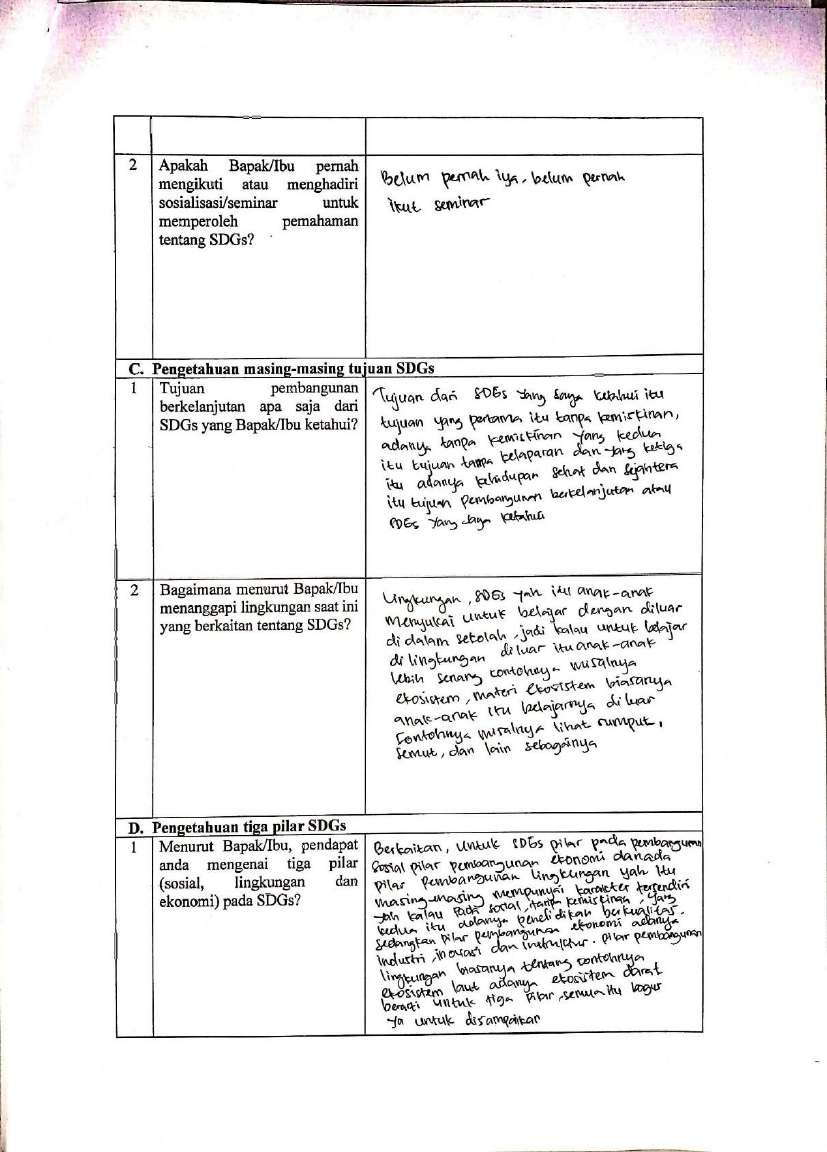 2
Apakah Bapak/Ibu pernah
mengikuti atau menghadiri
sosialisasi/seminar untuk
memperoleh pemahaman
tentang SDGs?
Belum pernah iya, belum pernah
ikut seminar
C. Pengetahuan masing-masing tujuan SDGs
1
Tujuan pembangunan
berkelanjutan apa saja dari
SDGs yang Bapak/Ibu ketahui?
Tujuan dari SDGs yang saya ketahui itu
tujuan yang pertama itu tanpa kemiskinan,
adanya tanpa kemiskinan yang kedua
itu tujuan tanpa kelaparan dan yang ketiga
itu adanya kehidupan sehat dan sejahtera
itu tujuan pembangunan berkelanjutan atau
SDGs yang saya ketahui
2
Bagaimana menurut Bapak/Ibu
menanggapi lingkungan saat ini
yang berkaitan tentang SDGs?
Lingkungan, SDGs yah itu anak-anak
menyukai untuk belajar dengan diluar
di dalam sekolah, jadi kalau untuk belajar
di lingkungan diluar itu anak-anak
lebih senang contohnya misalnya
ekosistem, materi ekosistem biasanya
anak-anak itu belajarnya diluar
contohnya misalnya lihat rumput,
semut, dan lain sebagainya
D. Pengetahuan tiga pilar SDGs
1
Menurut Bapak/Ibu, pendapat
anda mengenai tiga pilar
(sosial, lingkungan dan
ekonomi) pada SDGs?
Berkaitan, untuk SDGs pilar pada pembangunan
Sosial pilar pembangunan ekonomi dan ada
pilar Pembangunan lingkungan yah itu
masing-masing mempunyai karakter tersendiri
yah kalau pada sosial, tanpa kemiskinan, yang
kedua itu adanya penelidikan berkualitas.
Sedangkan pilar pembangunan ekonomi adanya
Industri, inovasi dan instruktur. pilar pembangunan
lingkungan biasanya tentang contohnya
ekosistem laut adanya ekosistem darat
berarti untuk tiga pilar, semua itu bagus
ya untuk disampaikan